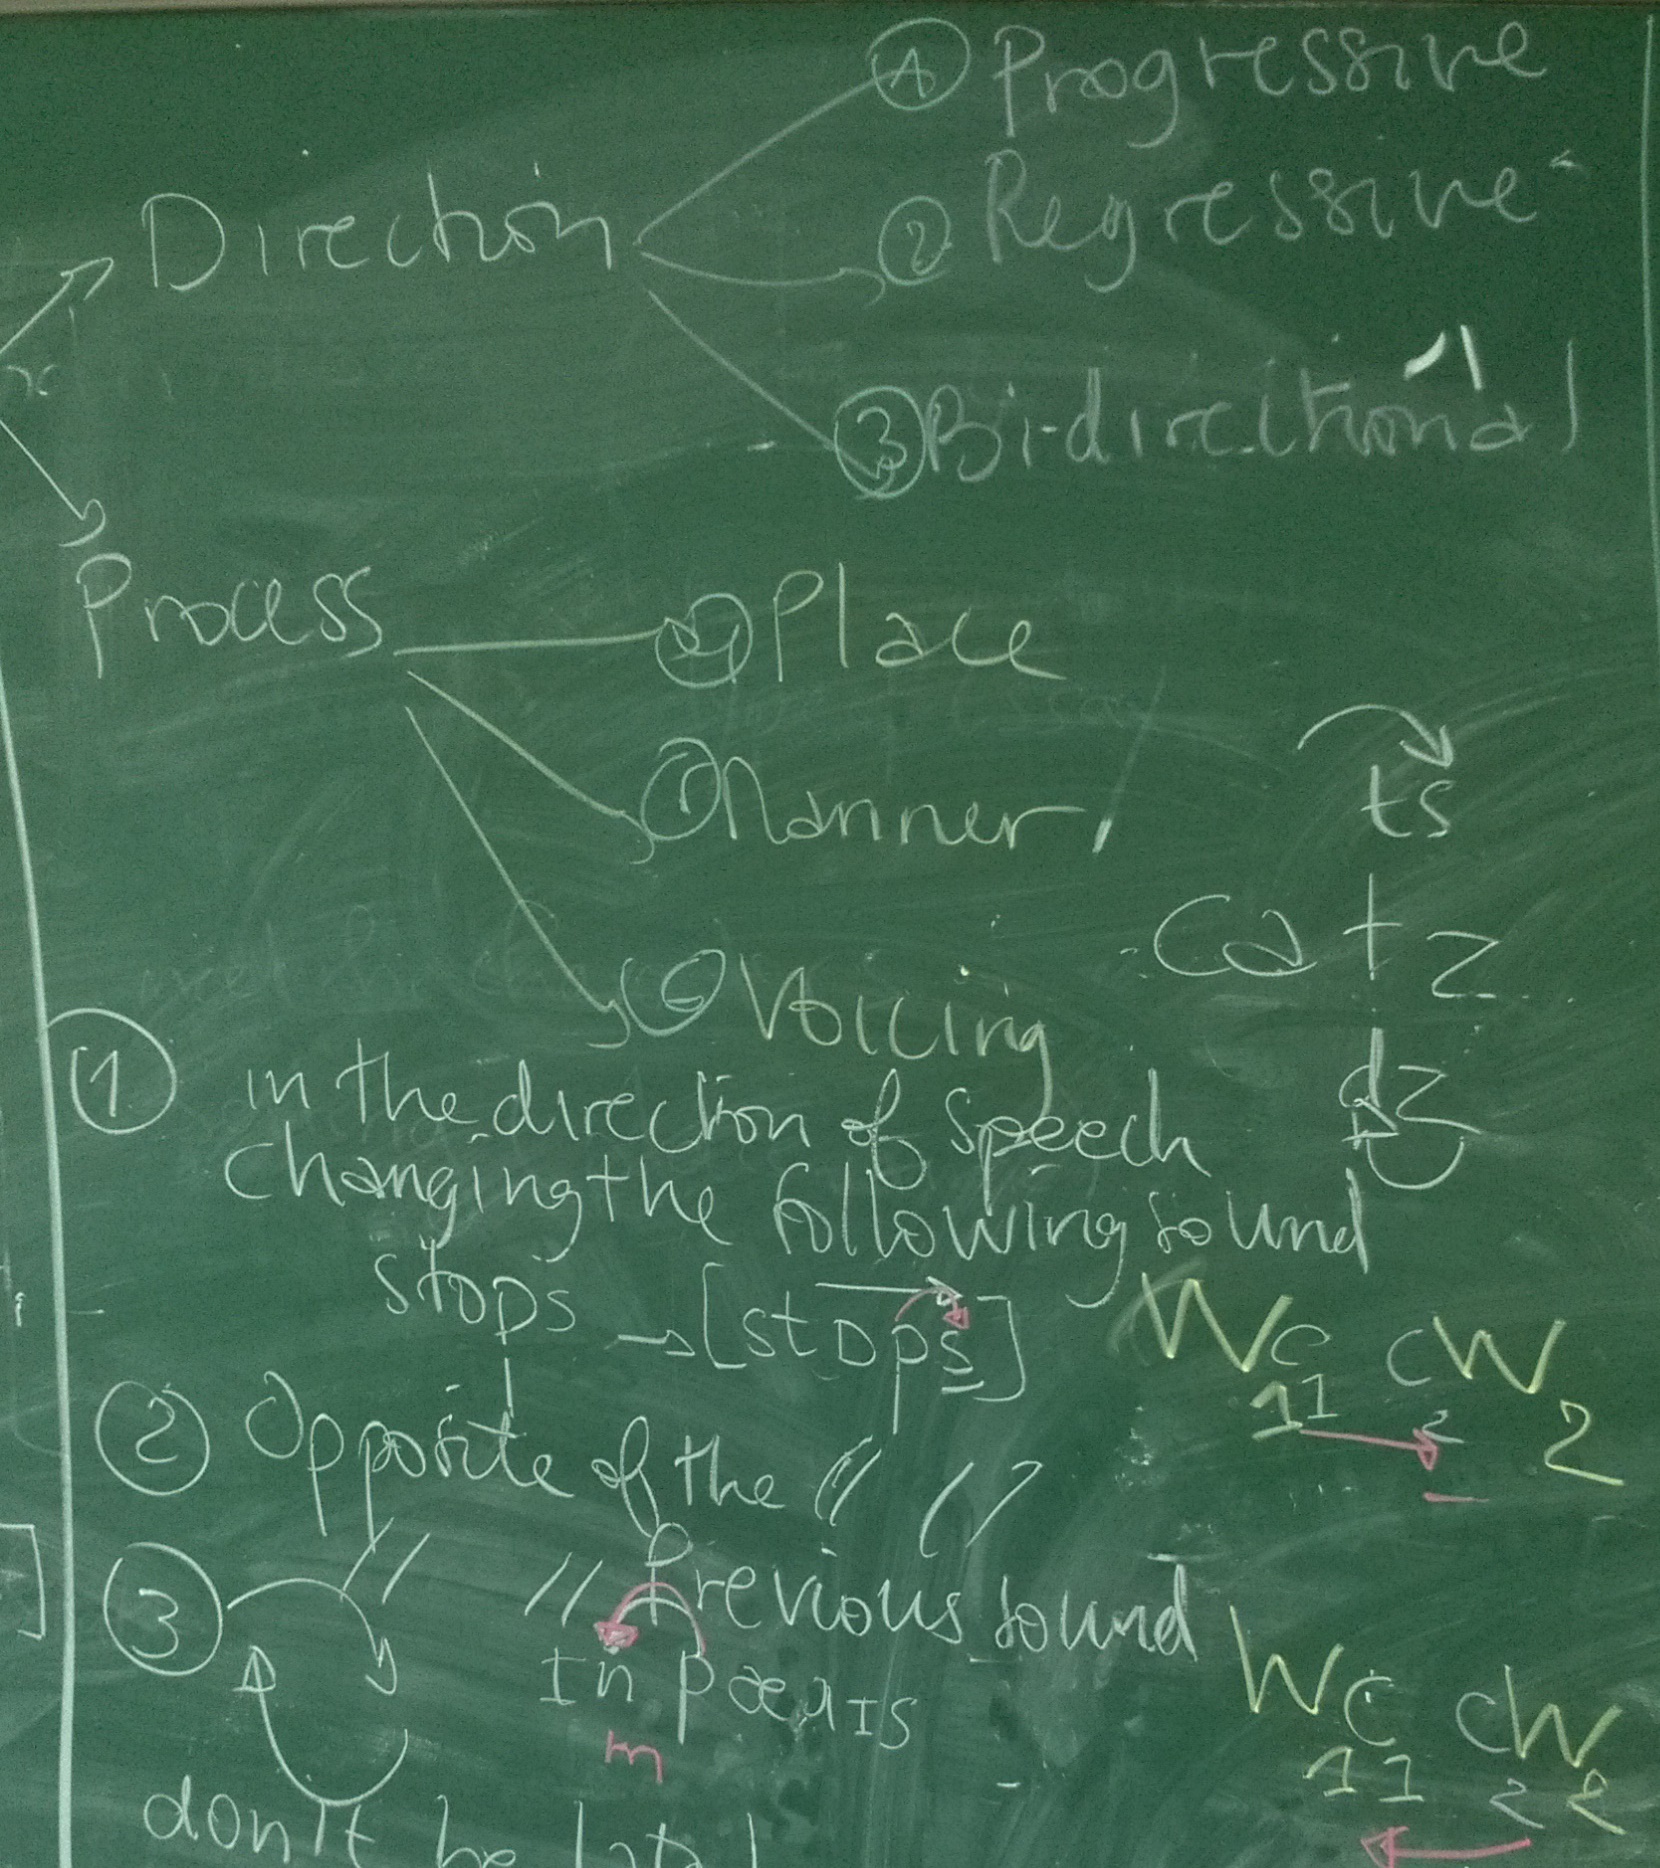 ① Progressive
Direction ② Regressive
③ Bi-directional
Process ④ Place
Manner
ts
Ca t z
⑥ Voicing
dz
① in the direction of speech
changing the following sound
stops → [stɒps]
Wc cW
1 1 2 2
② Opposite of the // //
// // Previous sound
③ In pærɪs
m
Wc cW
1 1 2 2
don't be late!